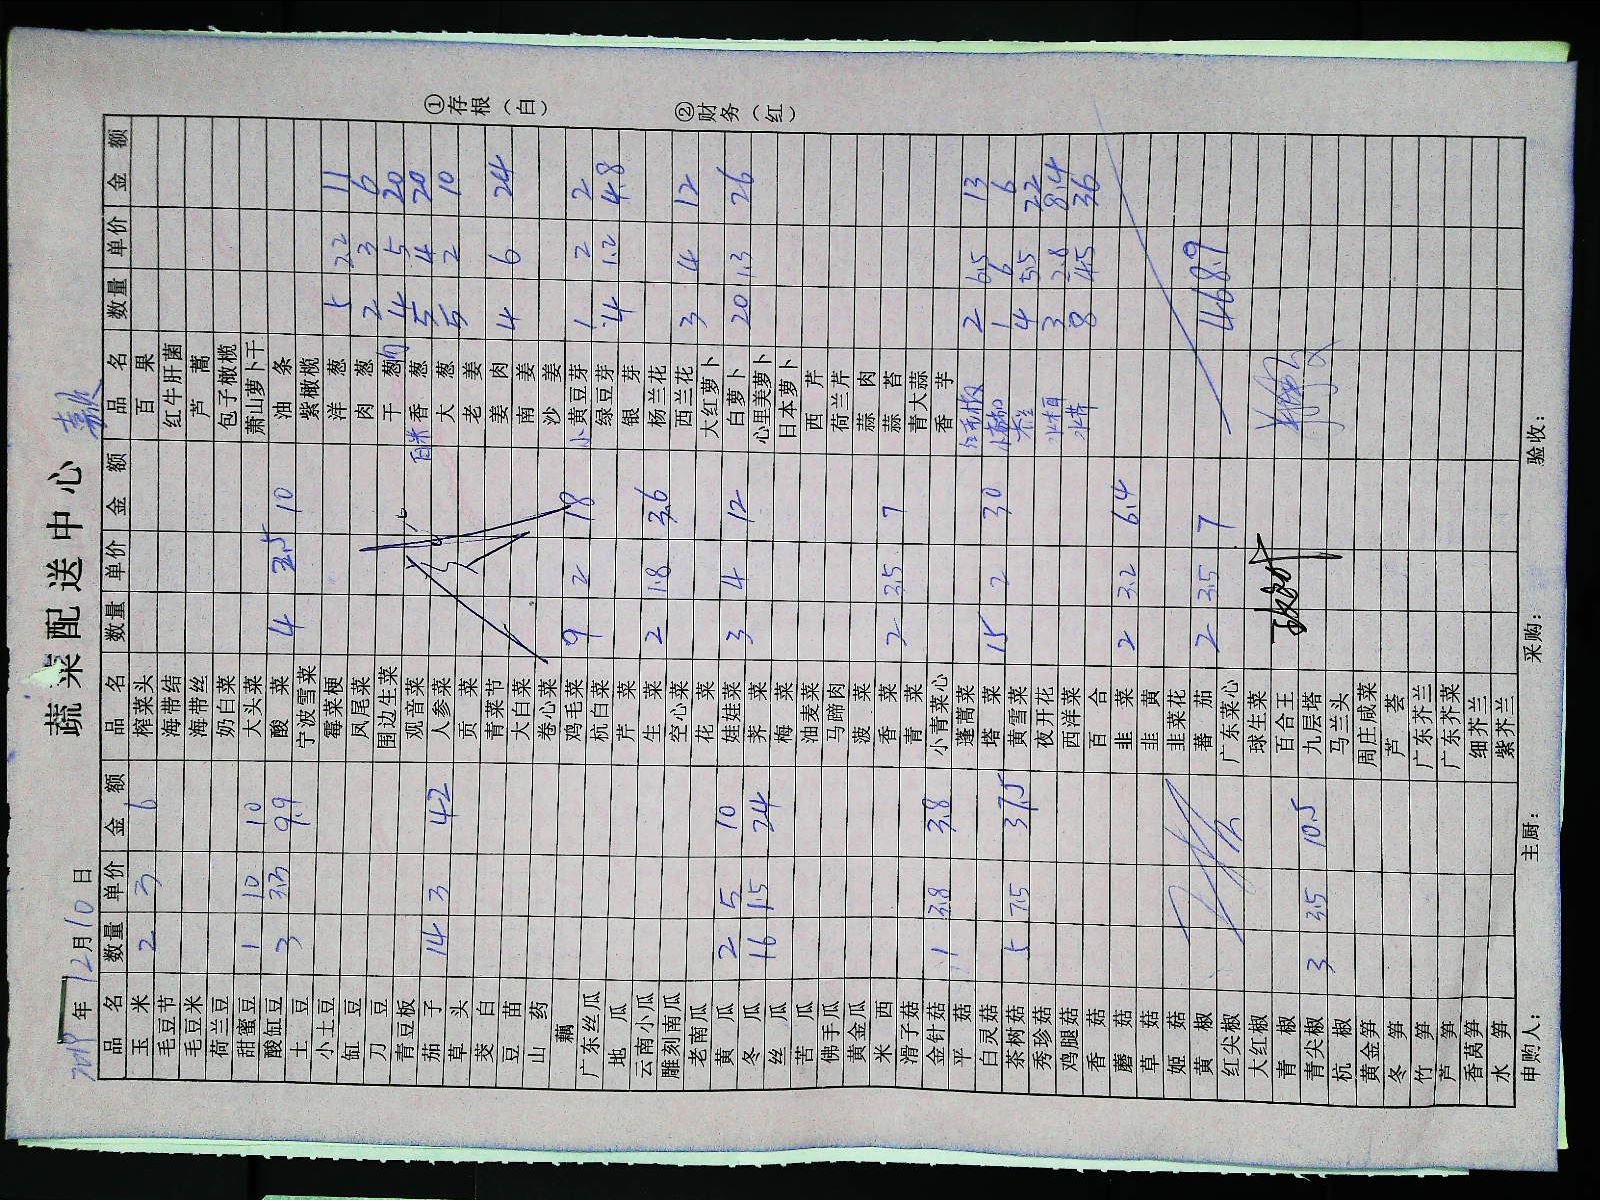 蔬菜配送中心
2019年12月10日
品名 数量 单价 金额 品名 数量 单价 金额 品名 数量 单价 金额
玉米 2 3 6 榨菜头 百果
毛豆节 海带结 红牛肝菌
毛豆米 海带丝 芦蒿
荷兰豆 奶白菜 包子橄榄
甜蜜豆 1 10 10 大头菜 萧山萝卜干
酸缸豆 3 3.3 9.9 酸菜 4 2.5 10 油条
土豆 宁波雪菜 紫橄榄
小土豆 霉菜梗 洋葱 5 2.2 11
缸豆 凤尾菜 肉葱 2 3 6
刀豆 围边生菜 干葱 4 5 20
青豆板 观音菜 香葱 5 4 20
茄子 14 3 42 人参菜 大葱 5 2 10
草头 贡菜 老姜
茭白 青菜节 姜肉 4 6 24
豆苗 大白菜 南姜
山药 卷心菜 沙姜
藕 鸡毛菜 9 2 18 小黄豆芽 1 2 2
广东丝瓜 杭白菜 绿豆芽 4 1.2 4.8
地瓜 芹菜 银芽
云南小瓜 生菜 2 1.8 3.6 杨兰花
雕刻南瓜 空心菜 西兰花 3 4 12
老南瓜 花菜 大红萝卜
黄瓜 2 5 10 娃娃菜 3 4 12 白萝卜 20 1.3 26
冬瓜 16 1.5 24 荠菜 心里美萝卜
丝瓜 梅菜 日本萝卜
苦瓜 油麦菜 西芹
佛手瓜 马蹄肉 荷兰芹
黄金瓜 菠菜 蒜肉
米西 香菜 2 3.5 7 蒜苔
滑子菇 青菜 青大蒜
金针菇 1 3.8 3.8 小青菜心 香芋
平菇 蓬蒿菜 2 6.5 13
白灵菇 塔菜 15 2 30 1 6 6
茶树菇 5 7.5 37.5 黄雪菜 4 5.5 22
秀珍菇 夜开花 3 2.8 8.4
鸡腿菇 西洋菜 8 4.5 36
香菇 百合
蘑菇 韭菜 2 3.2 6.4
草菇 韭黄
姬菇 韭菜花
黄椒 蕃茄 2 3.5 7 468.9
红尖椒 广东菜心
大红椒 球生菜
青椒 百合王
青尖椒 3 3.5 10.5 九层塔
杭椒 马兰头
黄金笋 周庄咸菜
冬笋 芦荟
竹笋 广东芥兰
芦笋 广东芥菜
香莴笋 细芥兰
水笋 紫芥兰
申购人： 主厨： 采购： 验收：
①存根（白）
②财务（红）